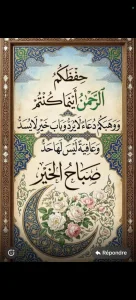 حفظكم
الرحمن أينما كنتم
ووهبكم دعاء لا يرد وباب خير لا يسد
وعافية ليس لها حد
صباح الخير
Répondre